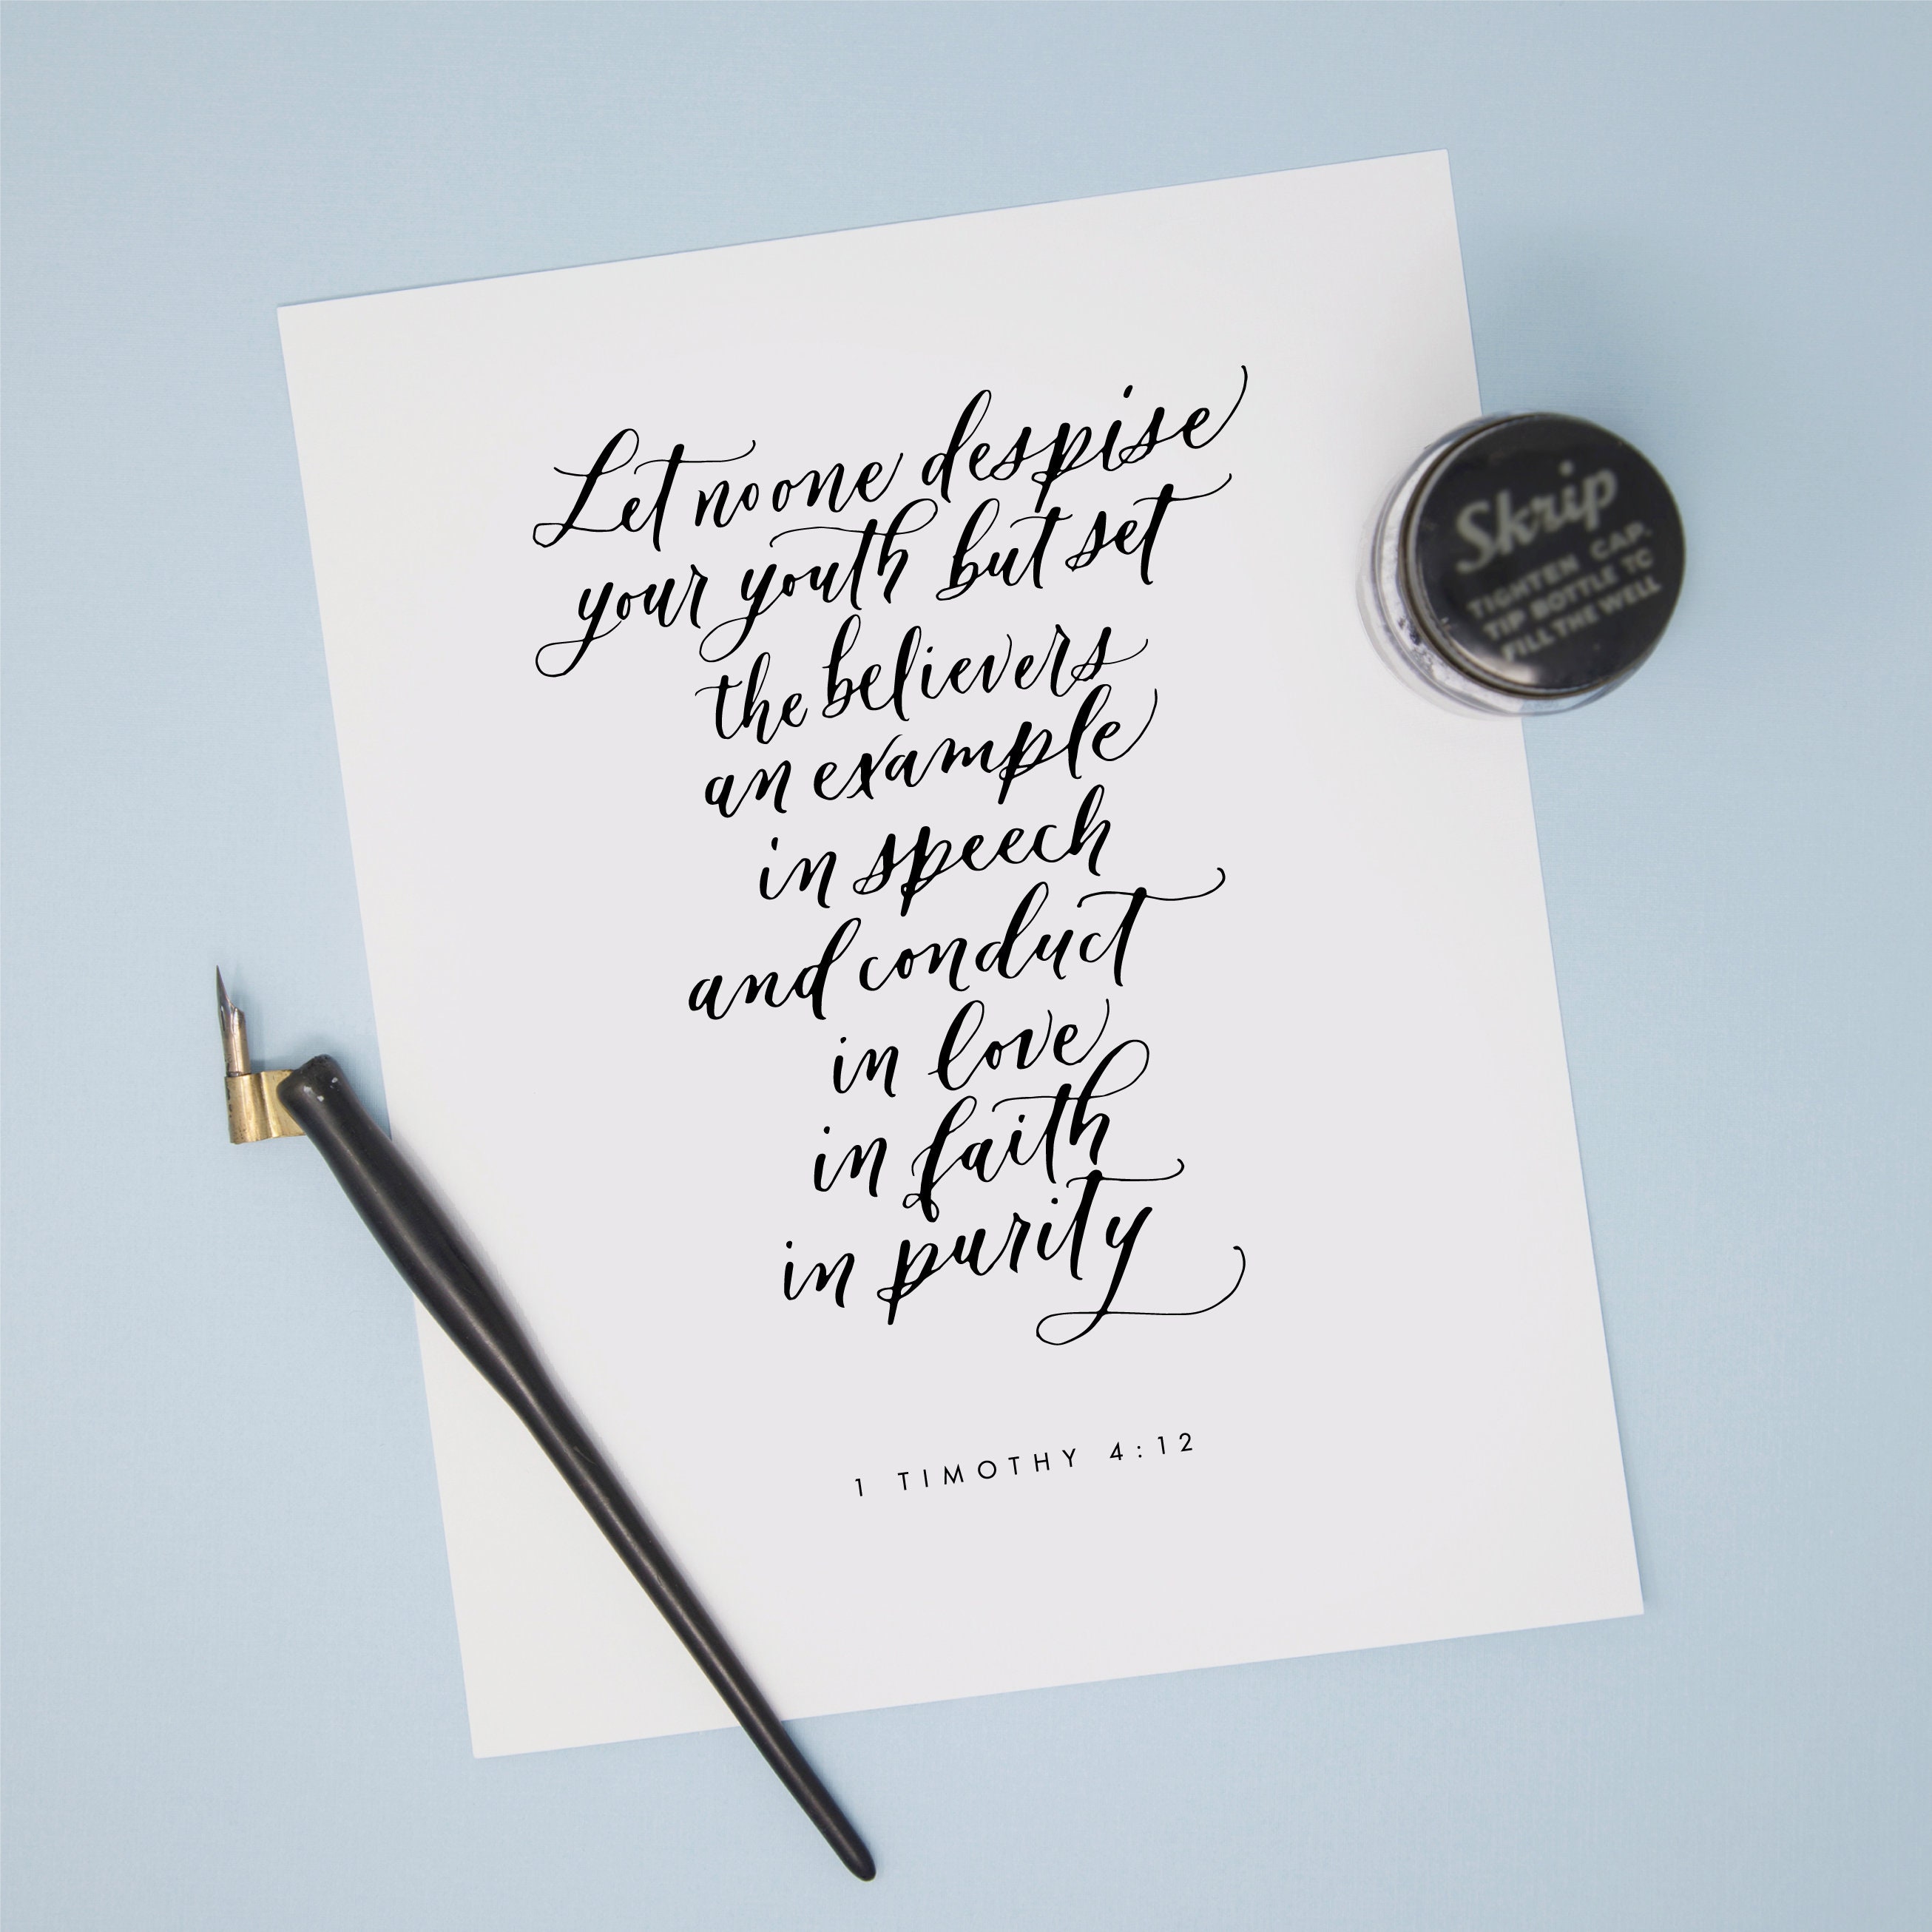 Let no one despise
your youth but set
the believers
an example
in speech
and conduct
in love
in faith
in purity
1 TIMOTHY 4:12
Skrip
TIGHTEN CAP.
TIP BOTTLE TO
FILL THE WELL